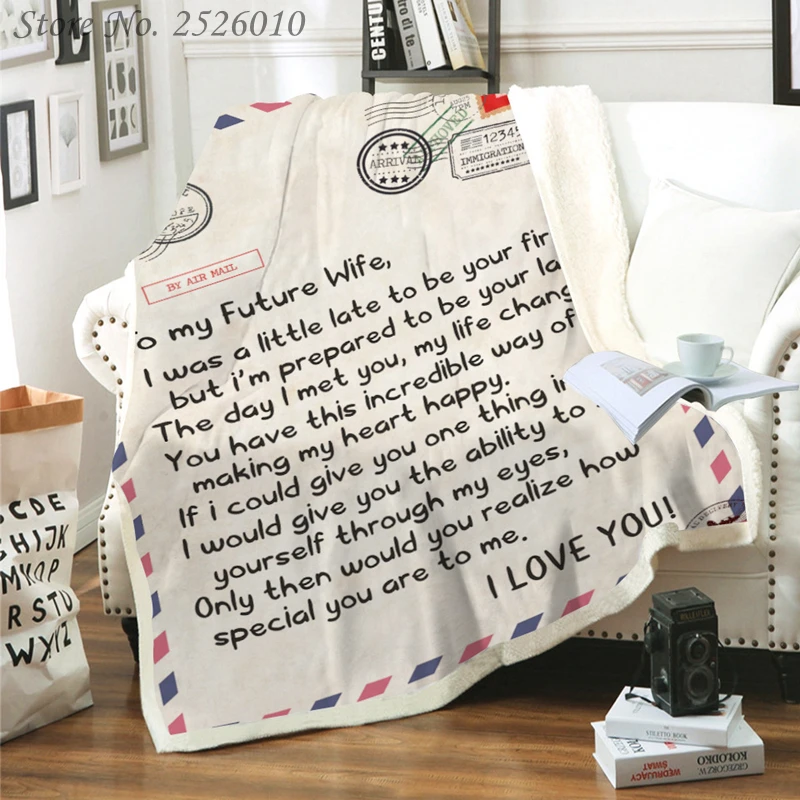 Store No. 2526010
CENTURY
tro di te
ARRIVAL
12345
IMMIGRATION
BY AIR MAIL
o my Future Wife,
I was a little late to be your fir
but i'm prepared to be your la
The day I met you, my life chang
You have this incredible way of
making my heart happy.
If i could give you one thing in
I would give you the ability to
yourself through my eyes,
Only then would you realize how
special you are to me.
I LOVE YOU!
CDE
GHIJK
MNOP
RSTU
WXYZ
ROLLEIFLEX
BOOK
GRZEGORZ
KOŁODKO
WĘDRUJĄCY
ŚWIAT